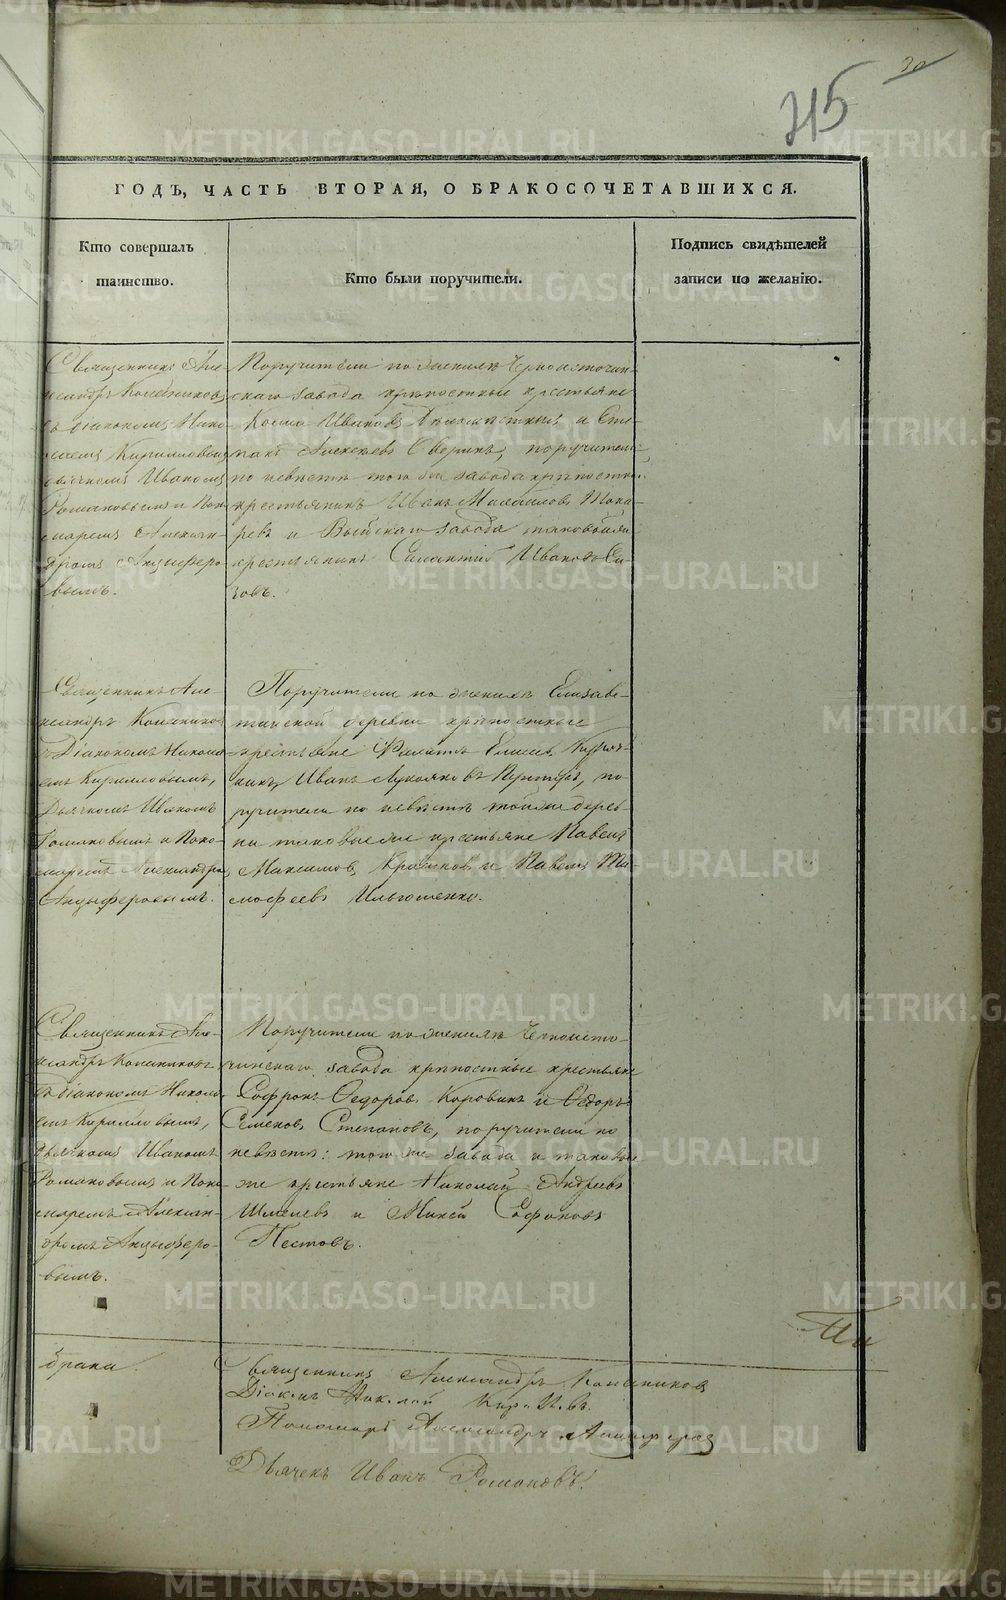 30
715
ГОДЪ, ЧАСТЬ ВТОРАЯ, О БРАКОСОЧЕТАВШИХСЯ.
Кто совершалъ
таинство.
Кто были поручители.
Подпись свидѣтелей
записи по желанію.
Священникъ Але-
ксандръ
съ діакономъ Нико-
лаемъ Кирилловымъ
дьячкомъ Иваномъ
Романовымъ и поно-
маремъ Алексан-
дромъ Анцыферо-
вымъ.
Поручители по женихѣ Черноисточин-
скаго завода крѣпостные крестьяне
Косма Ивановъ и
Алексѣевъ поручители
по невѣстѣ того же завода крѣпостной
крестьянинъ Иванъ Михаиловъ Тока-
ревъ и Выйскаго завода таковой же
крестьянинъ Ивановъ Си-
зовъ.
Священникъ Але-
ксандръ
съ Діакономъ Никола-
емъ Кирилловымъ,
Дьячкомъ Иваномъ
Романовымъ и поно-
маремъ Александромъ
Анцыферовымъ.
Поручители по женихѣ Елизаве-
тинской деревни крѣпостные
крестьяне
Иванъ по-
ручители по невѣстѣ той же дерев-
ни таковые же крестьяне Павелъ
Максимовъ и Павелъ Ти-
мофеевъ Ильюшенко.
Священникъ Але-
ксандръ
съ діакономъ Никола-
емъ Кирилловымъ,
дьячкомъ Иваномъ
Романовымъ и поно-
маремъ Алексан-
дромъ Анцыферо-
вымъ.
Поручители по женихѣ Черноисто-
чинскаго завода крѣпостные крестьяне
Софронъ Ѳедоровъ Коровинъ и Ѳедоръ
Семеновъ Степановъ, поручители по
невѣстѣ: того же завода и таковые
же крестьяне Николай Андреевъ
Шмелевъ и
Пестовъ.
браки.
Священникъ Александръ
Діаконъ Николай
Пономарь Александръ
Дьячекъ Иванъ Романовъ.
METRIKI.GASO-URAL.RU